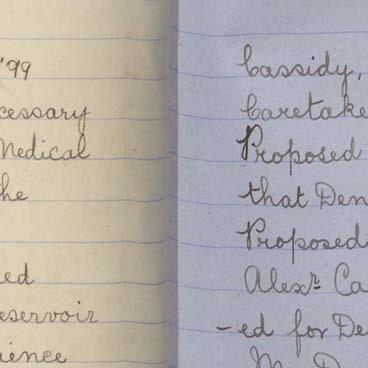 '99
cessary
Medical
the
ed
eservoir
ience
Cassidy,
Caretake
Proposed
that Den
Proposed
Alexr. Ca
-ed for De